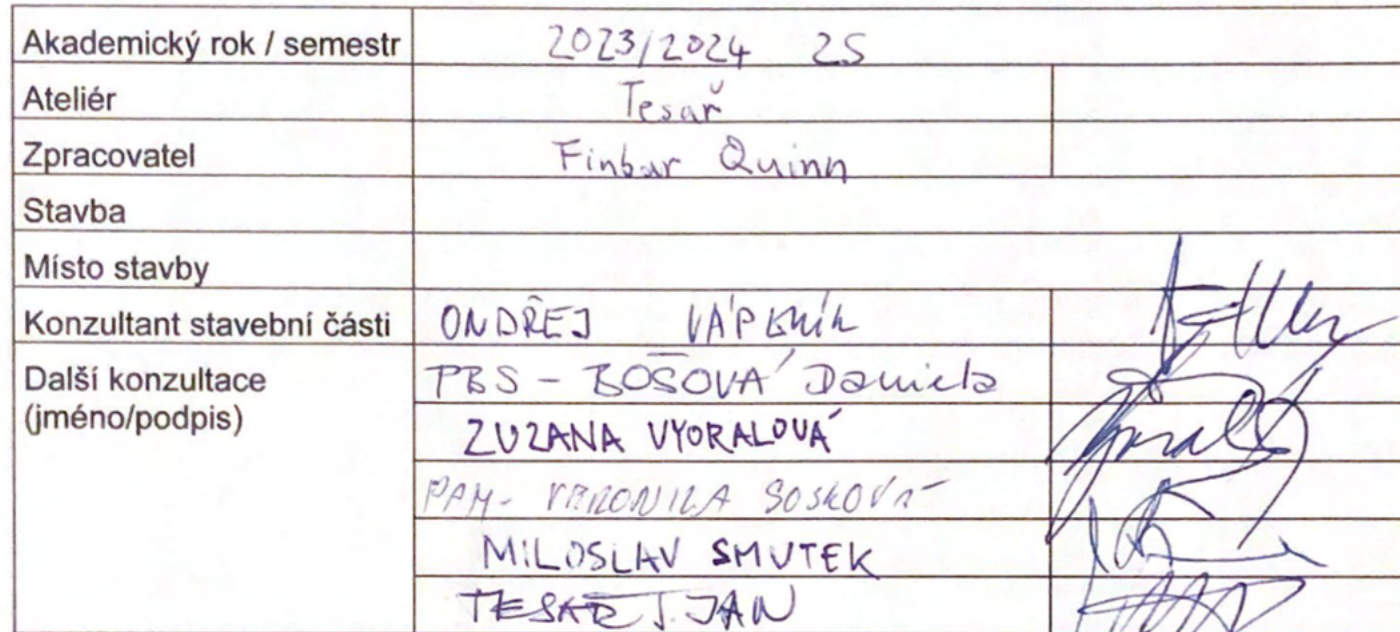 Akademický rok / semestr 2023/2024 2S
Ateliér Tesař
Zpracovatel Finbar Quinn
Stavba
Místo stavby
Konzultant stavební části ONDŘEJ VÁPENÍK
Další konzultace PBS - BOŠOVÁ Daniela
(jméno/podpis)
ZUZANA VYORALOVÁ
PAM - VERONIKA SOSKOVÁ
MILOSLAV SMUTEK
TESAŘ JAN